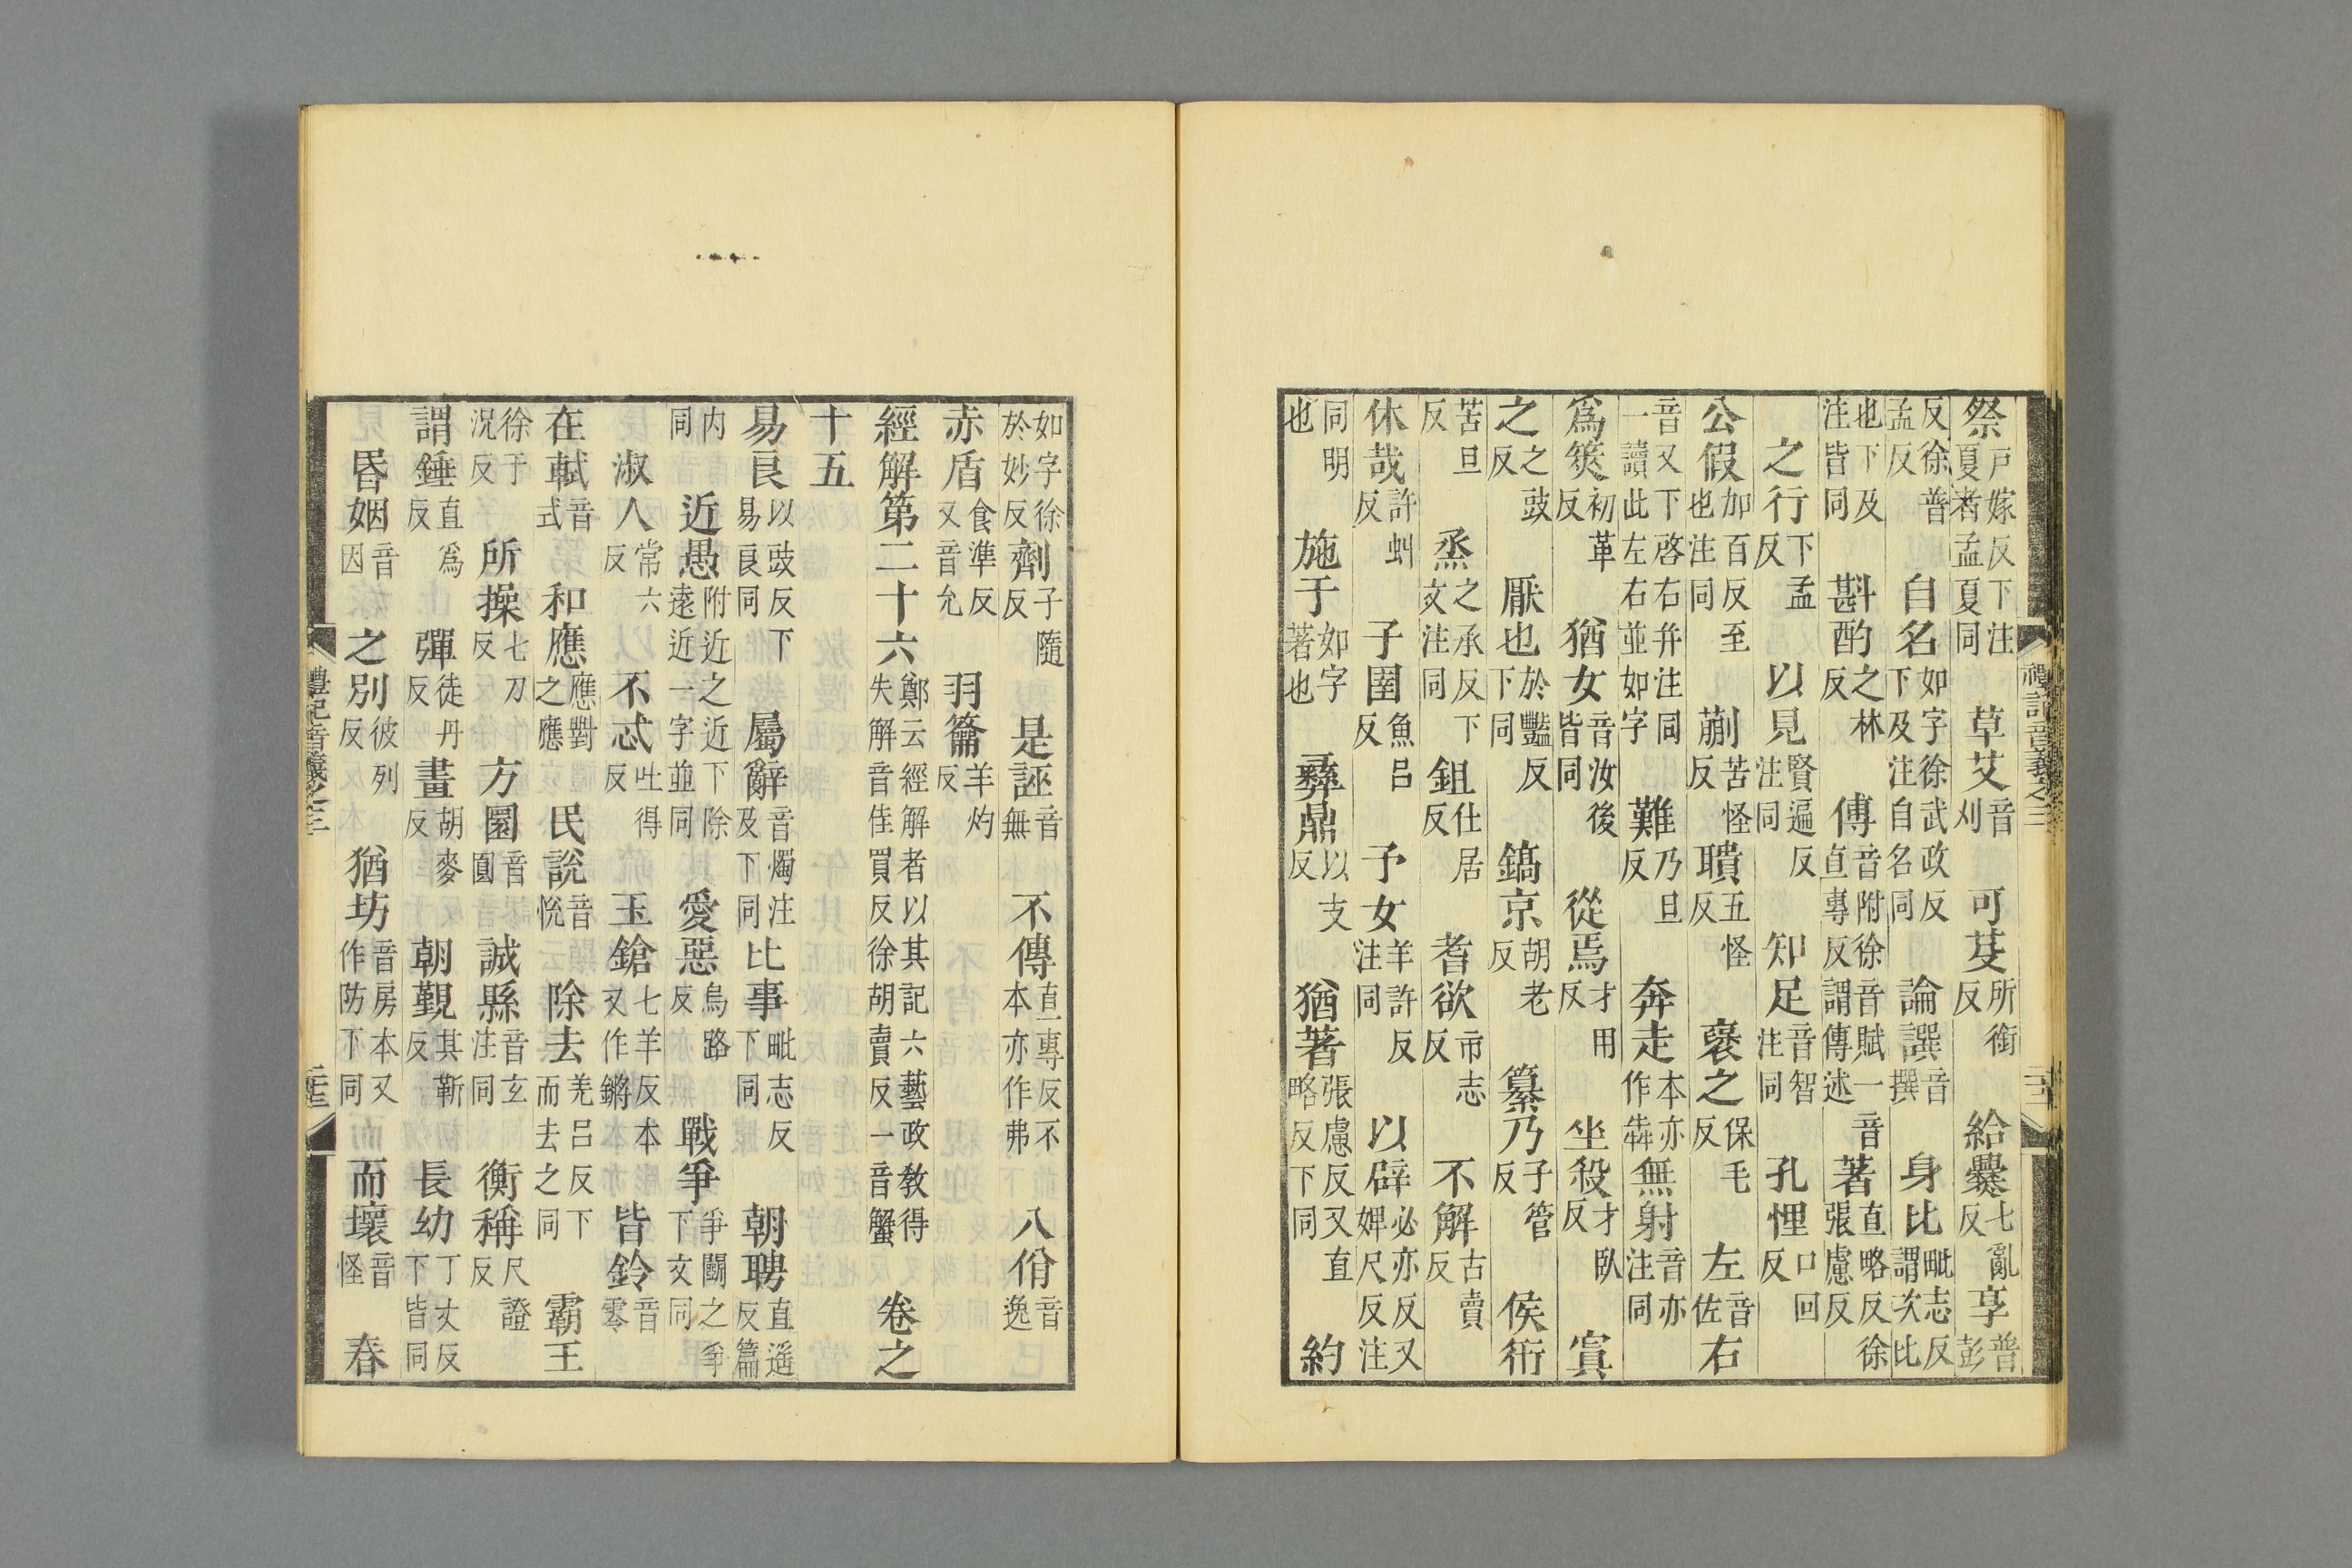 禮記音義之三
祭戶嫁反下注夏者孟夏同草艾音刈可芟所銜反給爨七亂反享普彭
反徐普孟反自名如字徐武政反下及注自名同論譔音撰身比毗志反謂次比
也下及注皆同斟酌之林反傅音附徐音賦一音直專反謂傳述著直略反徐張慮反
之行下孟反以見賢遍反注同知足音智注同孔悝口回反
公假加百反至也注同蒯苦怪反聵五怪反襃之保毛反左音佐右
音又下啓右幷注同一讀此左右並如字難乃旦反奔走本亦作犇無射音亦注同
爲筴初革反猶女音汝後皆同從焉才用反坐殺才臥反寘
之之豉反厭也於豔反下同鎬京胡老反纂乃子管反侯衎
苦旦反烝之承反下文注同鉏仕居反耆欲市志反不解古賣反
休哉許虯反子圉魚呂反予女羊許反注同以辟必亦反又婢尺反注
同明也施于如字著也彝鼎以支反猶著張慮反又直略反下同約
如字徐於妙反劑子隨反是誣音無不傳直專反不本亦作弗八佾音逸
赤盾食準反又音允羽籥羊灼反
經解第二十六鄭云經解者以其記六藝政敎得失解音佳買反徐胡賣反一音蟹卷之
十五
易良以豉反下易良同屬辭音燭注及下同比事毗志反下同朝聘直遥反篇
内同近愚附近之近下除遠近一字並同愛惡烏路反戰爭爭鬬之爭下文同
淑人常六反不忒吐得反玉鎗七羊反本又作鏘皆鈴音零
在軾音式和應應對之應民說音悅除去羌呂反下而去之同霸王
徐于況反所操七刀反方圜音圓誠縣音玄注同衡稱尺證反
謂錘直爲反彈徒丹反畫胡麥反朝覲其靳反長幼丁丈反下皆同
昏姻音因之別彼列反猶坊音房本又作防下同而壞音怪春
禮記音義之三